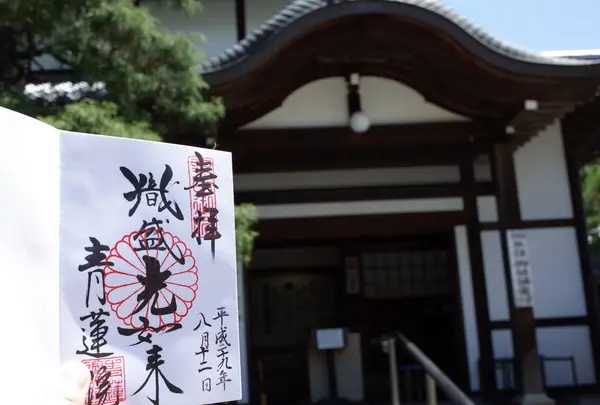 奉拝
熾盛光如来
青蓮院
平成二十九年
八月十二日